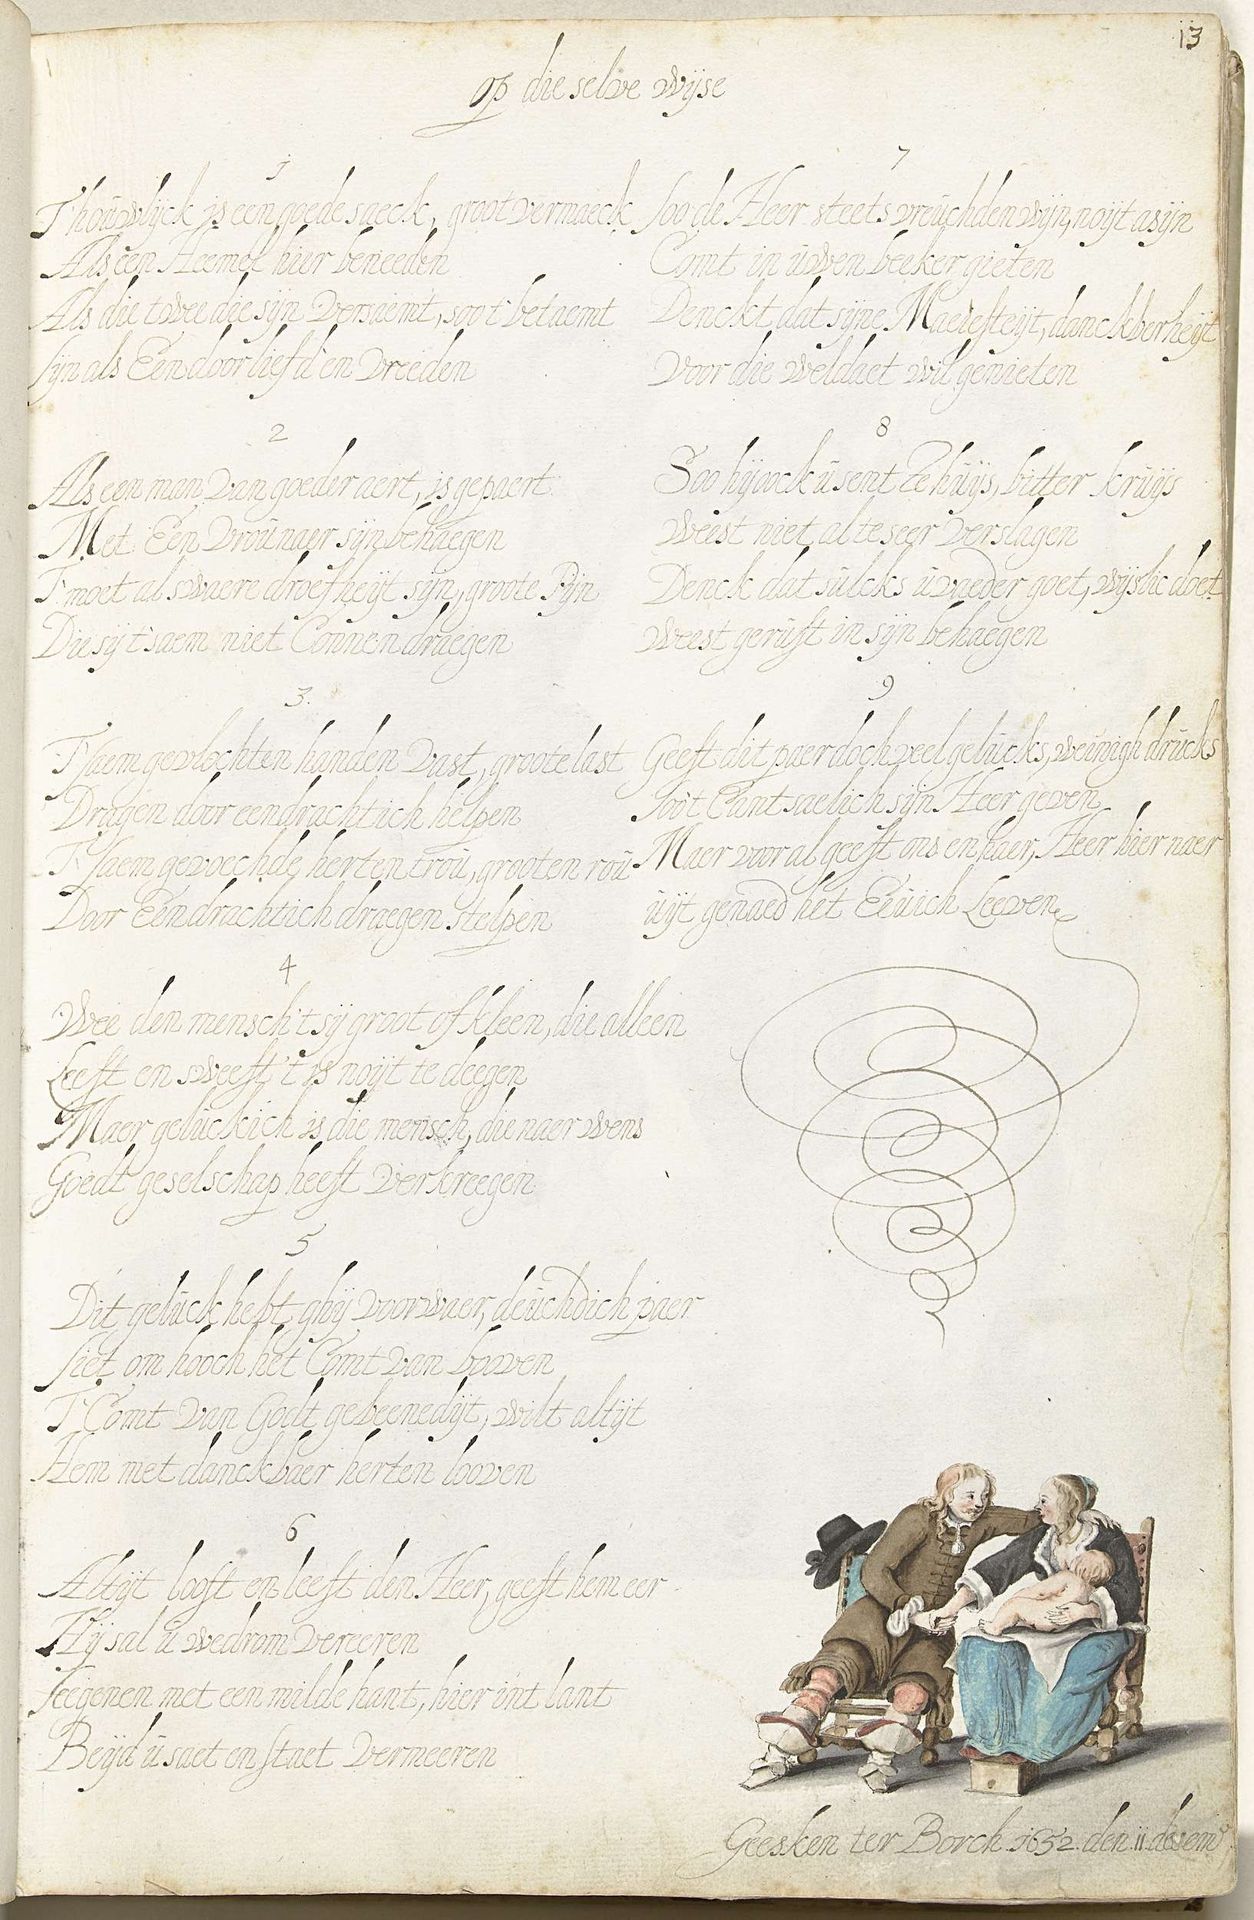 13
op die selve wijse
1
T'houwlijck is een goede saeck, groot vermaeck
Als een Heemel hier beneeden
Als die twee die sijn versaemt, soo't betaemt
sijn als Een door liefd' en vreeden
2
Als een man van goeder aert, is gepaert
Met Een vrou naer sijn behaegen
T' moet al swaere droefheijt sijn, groote Pijn
Die sij t'saem niet Connen draegen
3.
T'saem gevlochten handen vast, groote last
Dragen door eendrachtich helpen
T'saem gevoechde herten trou, grooten rou
Door Eendrachtich draegen stelpen
4
Wee den mensch 't sij groot of kleen, die alleen
Leeft en sweeft, 't is noijt te deegen
Maer geluckich is die mensch, die naer wens
Goedt geselschap heeft verkreegen
5
Dit geluck hebt ghij voorwaer, deuchdich paer
siet om hooch het Comt van booven
T' Comt van Godt gebeenedijt, wilt altijt
Hem met danckbaer herten looven
6
Altijt looft en leeft den Heer, geeft hem eer
Hij sal u wedrom vereeren
seegenen met een milde hant, hier int lant
Beijd u saet en staet vermeeren
7
soo de Heer steets vreuchden wijn, noijt asijn
Comt in uwen beeker gieten
Denckt dat sijne Maeiesteijt, danckberheijt
voor die weldaet wil genieten
8
Soo hij oock u sent te huijs, bitter kruijs
weest niet al te seer verslagen
Denck dat sulcks u vaeder goet, wijslic doet
weest gerust in sijn behaegen
9
Geeft dit paer doch veel gelucks, weinigh drucks
soo't Cant saelich sijn Heer geven
Maer voor al geeft ons en haer, Heer hier naer
uijt genaed het Eeuich Leeven
Geesken ter Borch 1652. den 11 desem